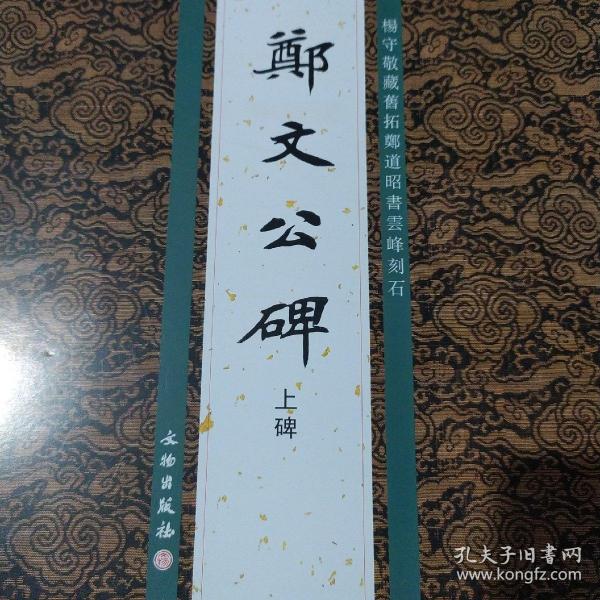 楊守敬藏舊拓鄭道昭書雲峰刻石
鄭文公碑
上碑
文物出版社
孔夫子旧書网
www.kongfz.com